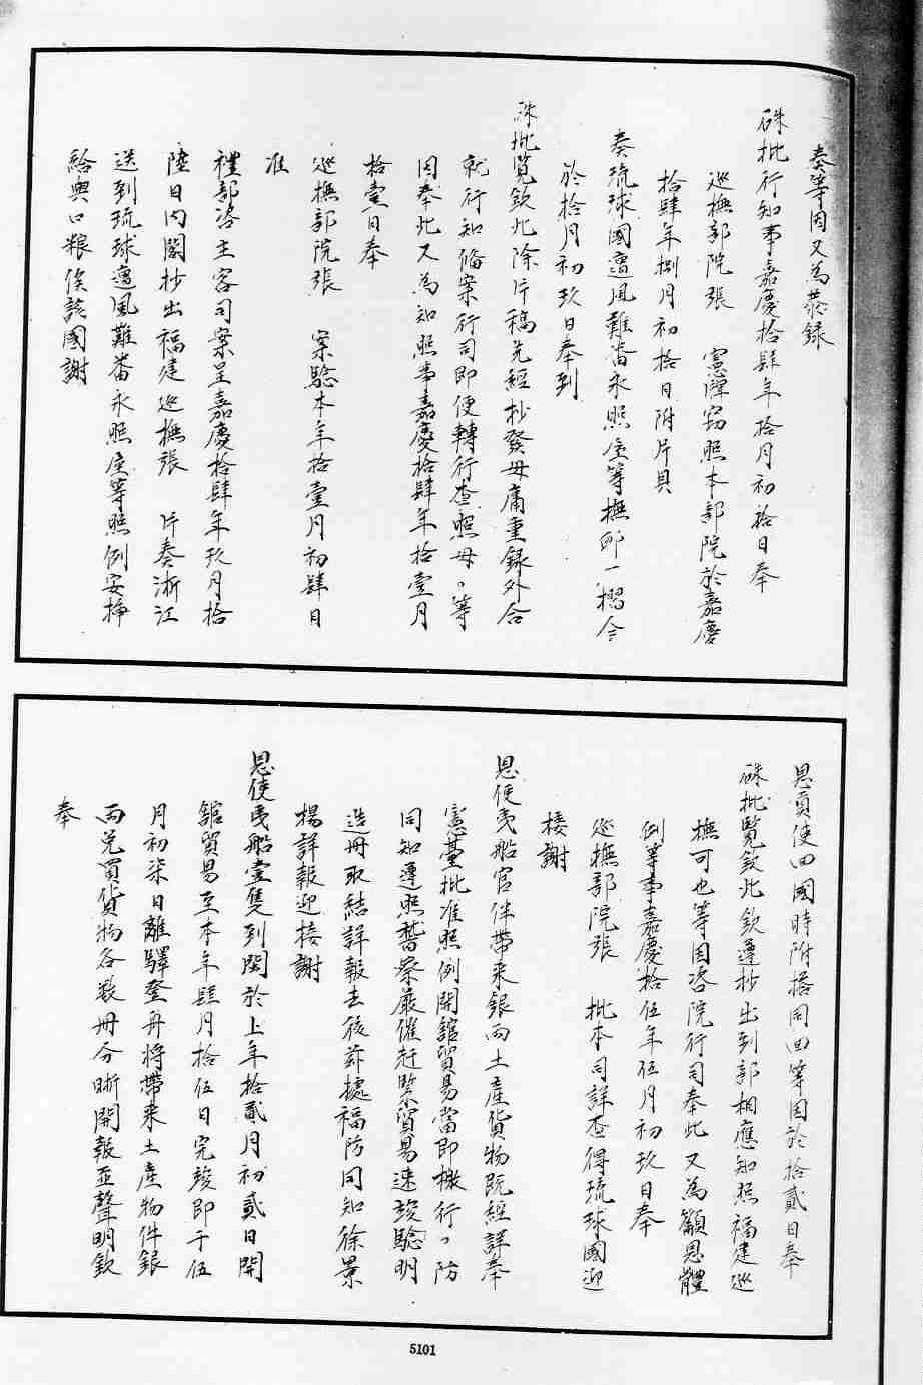 奏等因又為恭錄
硃批行知事嘉慶拾肆年拾月初拾日奉
巡撫部院張　憲牌窃照本部院於嘉慶
拾肆年捌月初拾日附片具
奏琉球國遭風難番永照屋等撫卹一摺今
於拾月初玖日奉到
硃批覽欽此除片稿先經抄發毋庸重錄外合
就行知俻案行司即便轉行查照毋〻等
因奉此又為知照事嘉慶拾肆年拾壹月
拾壹日奉
巡撫部院張　案驗本年拾壹月初肆日
准
禮部咨主客司案呈嘉慶拾肆年玖月拾
陸日内閣抄出福建巡撫張　片奏浙江
送到琉球遭風難番永照屋等照例安揷
給與口粮俟該國謝
恩貢使回國時附搭同回等因於拾貳日奉
硃批覽欽此欽遵抄出到部相應知照福建巡
撫可也等因咨院行司奉此又為籲恩體
例等事嘉慶拾伍年伍月初玖日奉
巡撫部院張　批本司詳查得琉球國迎
接謝
恩使夷船官伴帶來銀両土產貨物既經詳奉
憲臺批准照例開舘貿易當即檄行〻防
同知遵照督察嚴催赶緊貿易速竣驗明
造冊取結詳報去後茲據福防同知徐景
楊詳報迎接謝
恩使夷船壹隻到関於上年拾貳月初貳日開
舘貿易至本年肆月拾伍日完竣即于伍
月初柒日離驛登舟將帶來土產物件銀
両兌買貨物各数冊分晰開報並聲明欽
奉
5101